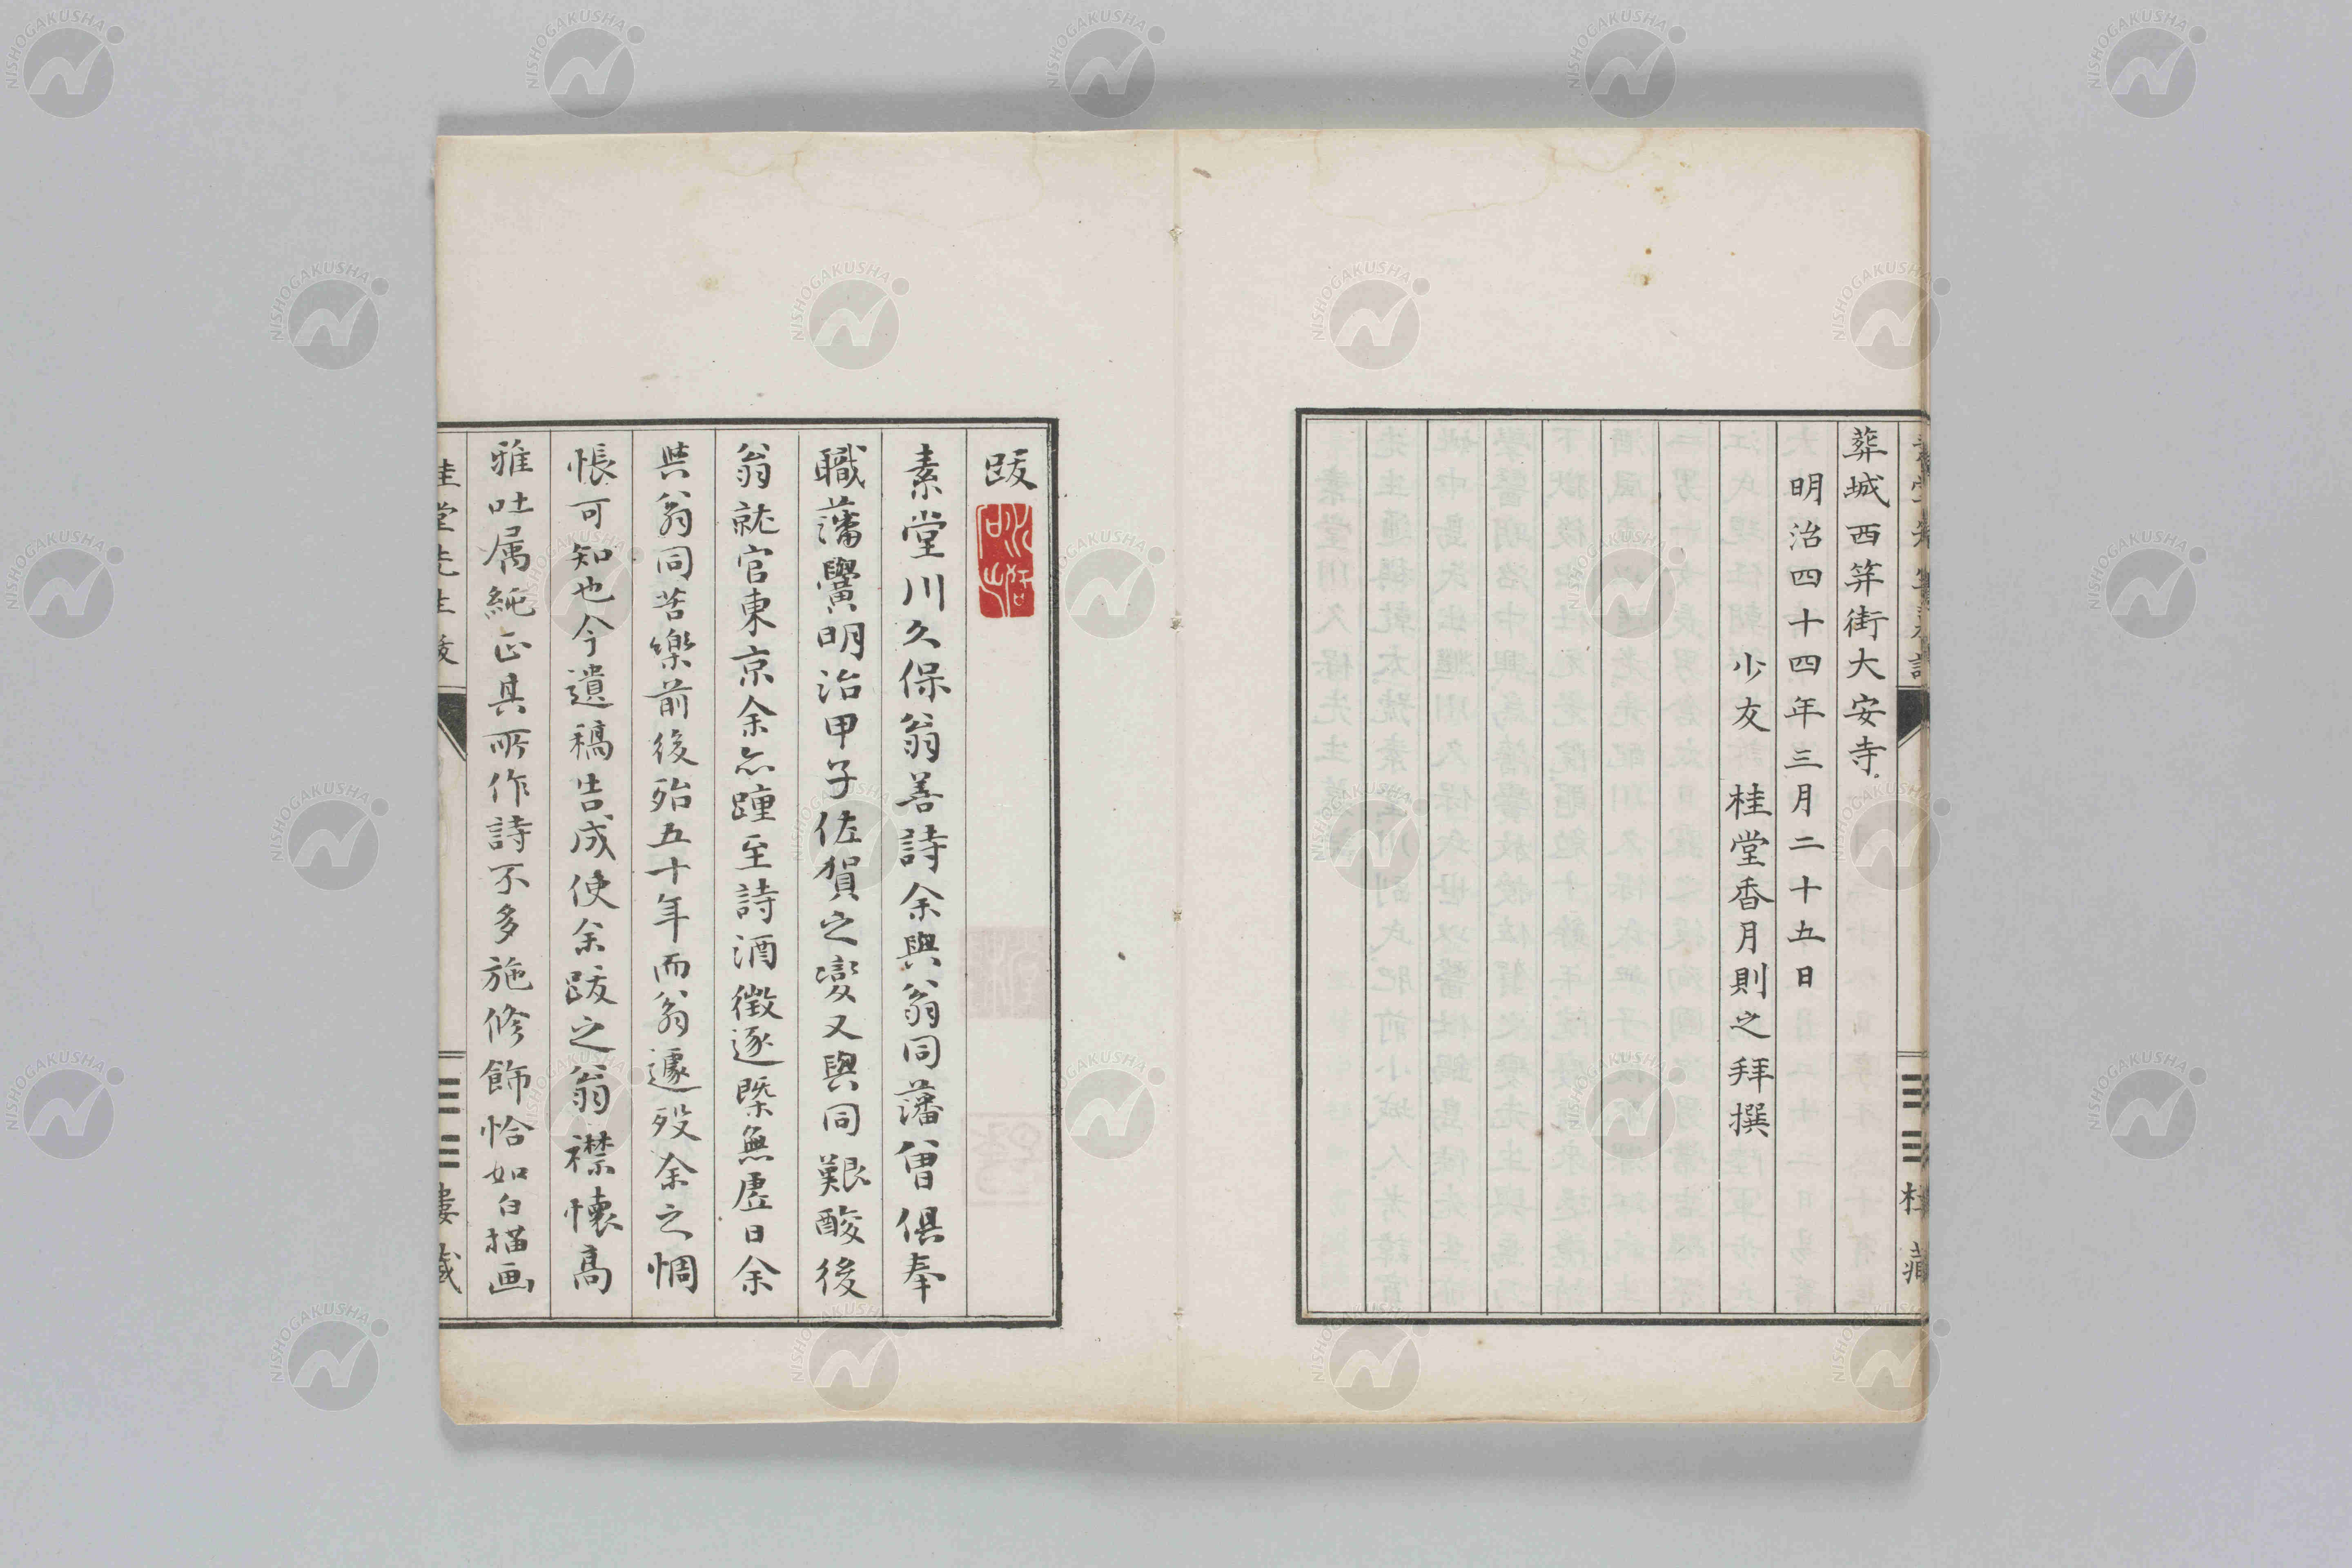 葬城西笄街大安寺
明治四十四年三月二十五日
少友 桂堂香月則之拜撰
桂藏
跋
素堂川久保翁善詩余與翁同藩曾俱奉
職藩黌明治甲子佐賀之變又與同艱酸後
翁就官東京余亦踵至詩酒徴逐曁無虛日余
與翁同苦樂前後殆五十年而翁遽歿余之惆
悵可知也今遺稿告成使余跋之翁襟懷高
雅吐属純正其所作詩不多施修飾恰如白描画
NISHOGAKUSHA